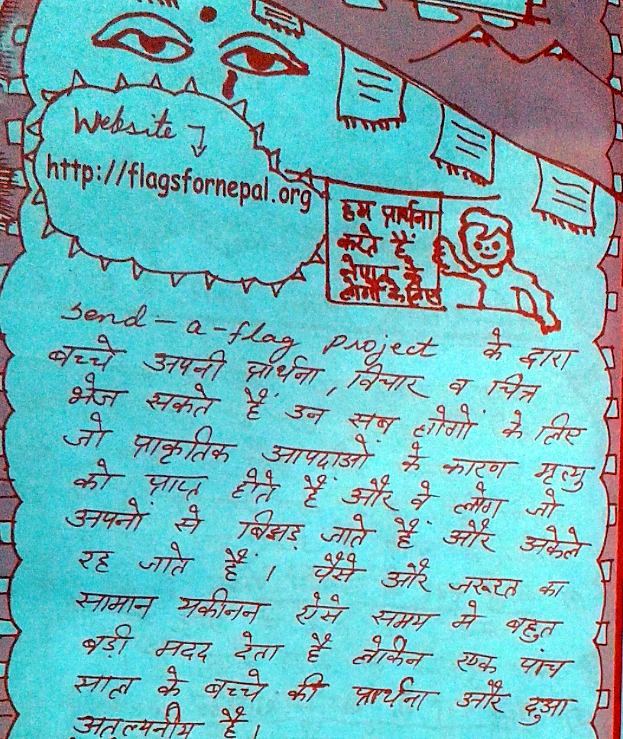 Website
http://flagsfornepal.org
हम प्रार्थना
करते हैं
नेपाल के
लोगों के लिए
send-a-flag project के द्वारा
बच्चे अपनी प्रार्थना, विचार व चित्र
भेज सकते हैं उन सब लोगों के लिए
जो प्राकृतिक आपदाओं के कारण मृत्यु
को प्राप्त होते हैं और वे लोग जो
अपनों से बिछड़ जाते हैं और अकेले
रह जाते हैं। पैसे और जरूरत का
सामान यकीनन ऐसे समय मे बहुत
बड़ी मदद देता है लेकिन एक पांच
साल के बच्चे की प्रार्थना और दुआ
अतुल्यनीय है।